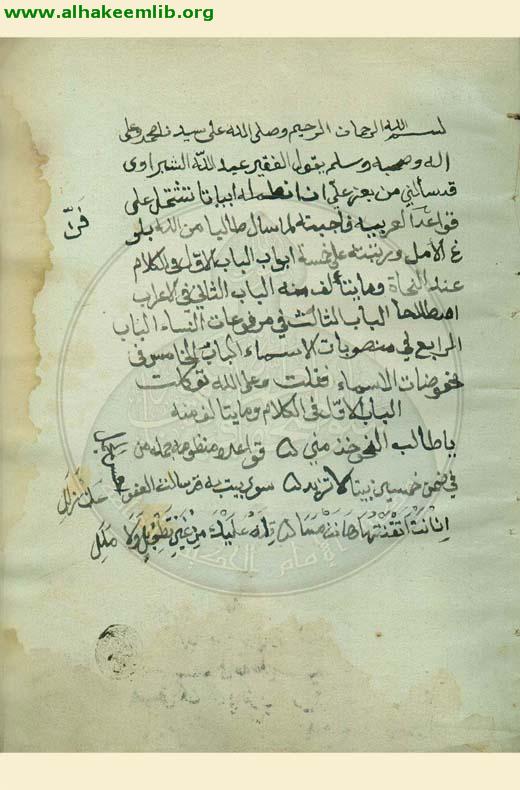 www.alhakeemlib.org
بسم الله الرحمان الرحيم وصلى الله على سيدنا محمد وعلى
اله وصحبه وسلم يقول الفقير عبد الله الشبراوي
قد سألني من يعز علي ان انظم له ابياتا تشتمل على
قواعد العربيه فاجبته لما سال طالبا من الله بلو
غ الامل ورتبته على خمسة ابواب الباب الاول في الكلام
عند النحاة وما يتألف منه الباب الثاني في الاعراب
اصطلاحا الباب الثالث في مرفوعات الباب
الرابع في منصوبات الاسماء الباب الخامس في
مخفوضات الاسماء فقلت وعلى الله توكلت
الباب الاول في الكلام وما يتالف منه
يا طالب النحو خذ مني قواعد منظومة جملة من
في ضمن خمسين بيتا لا تزيد سوى بيت به قد سالت العفو
ان انت اتقنتها هانت عليك من غير تطويل ولا ملل